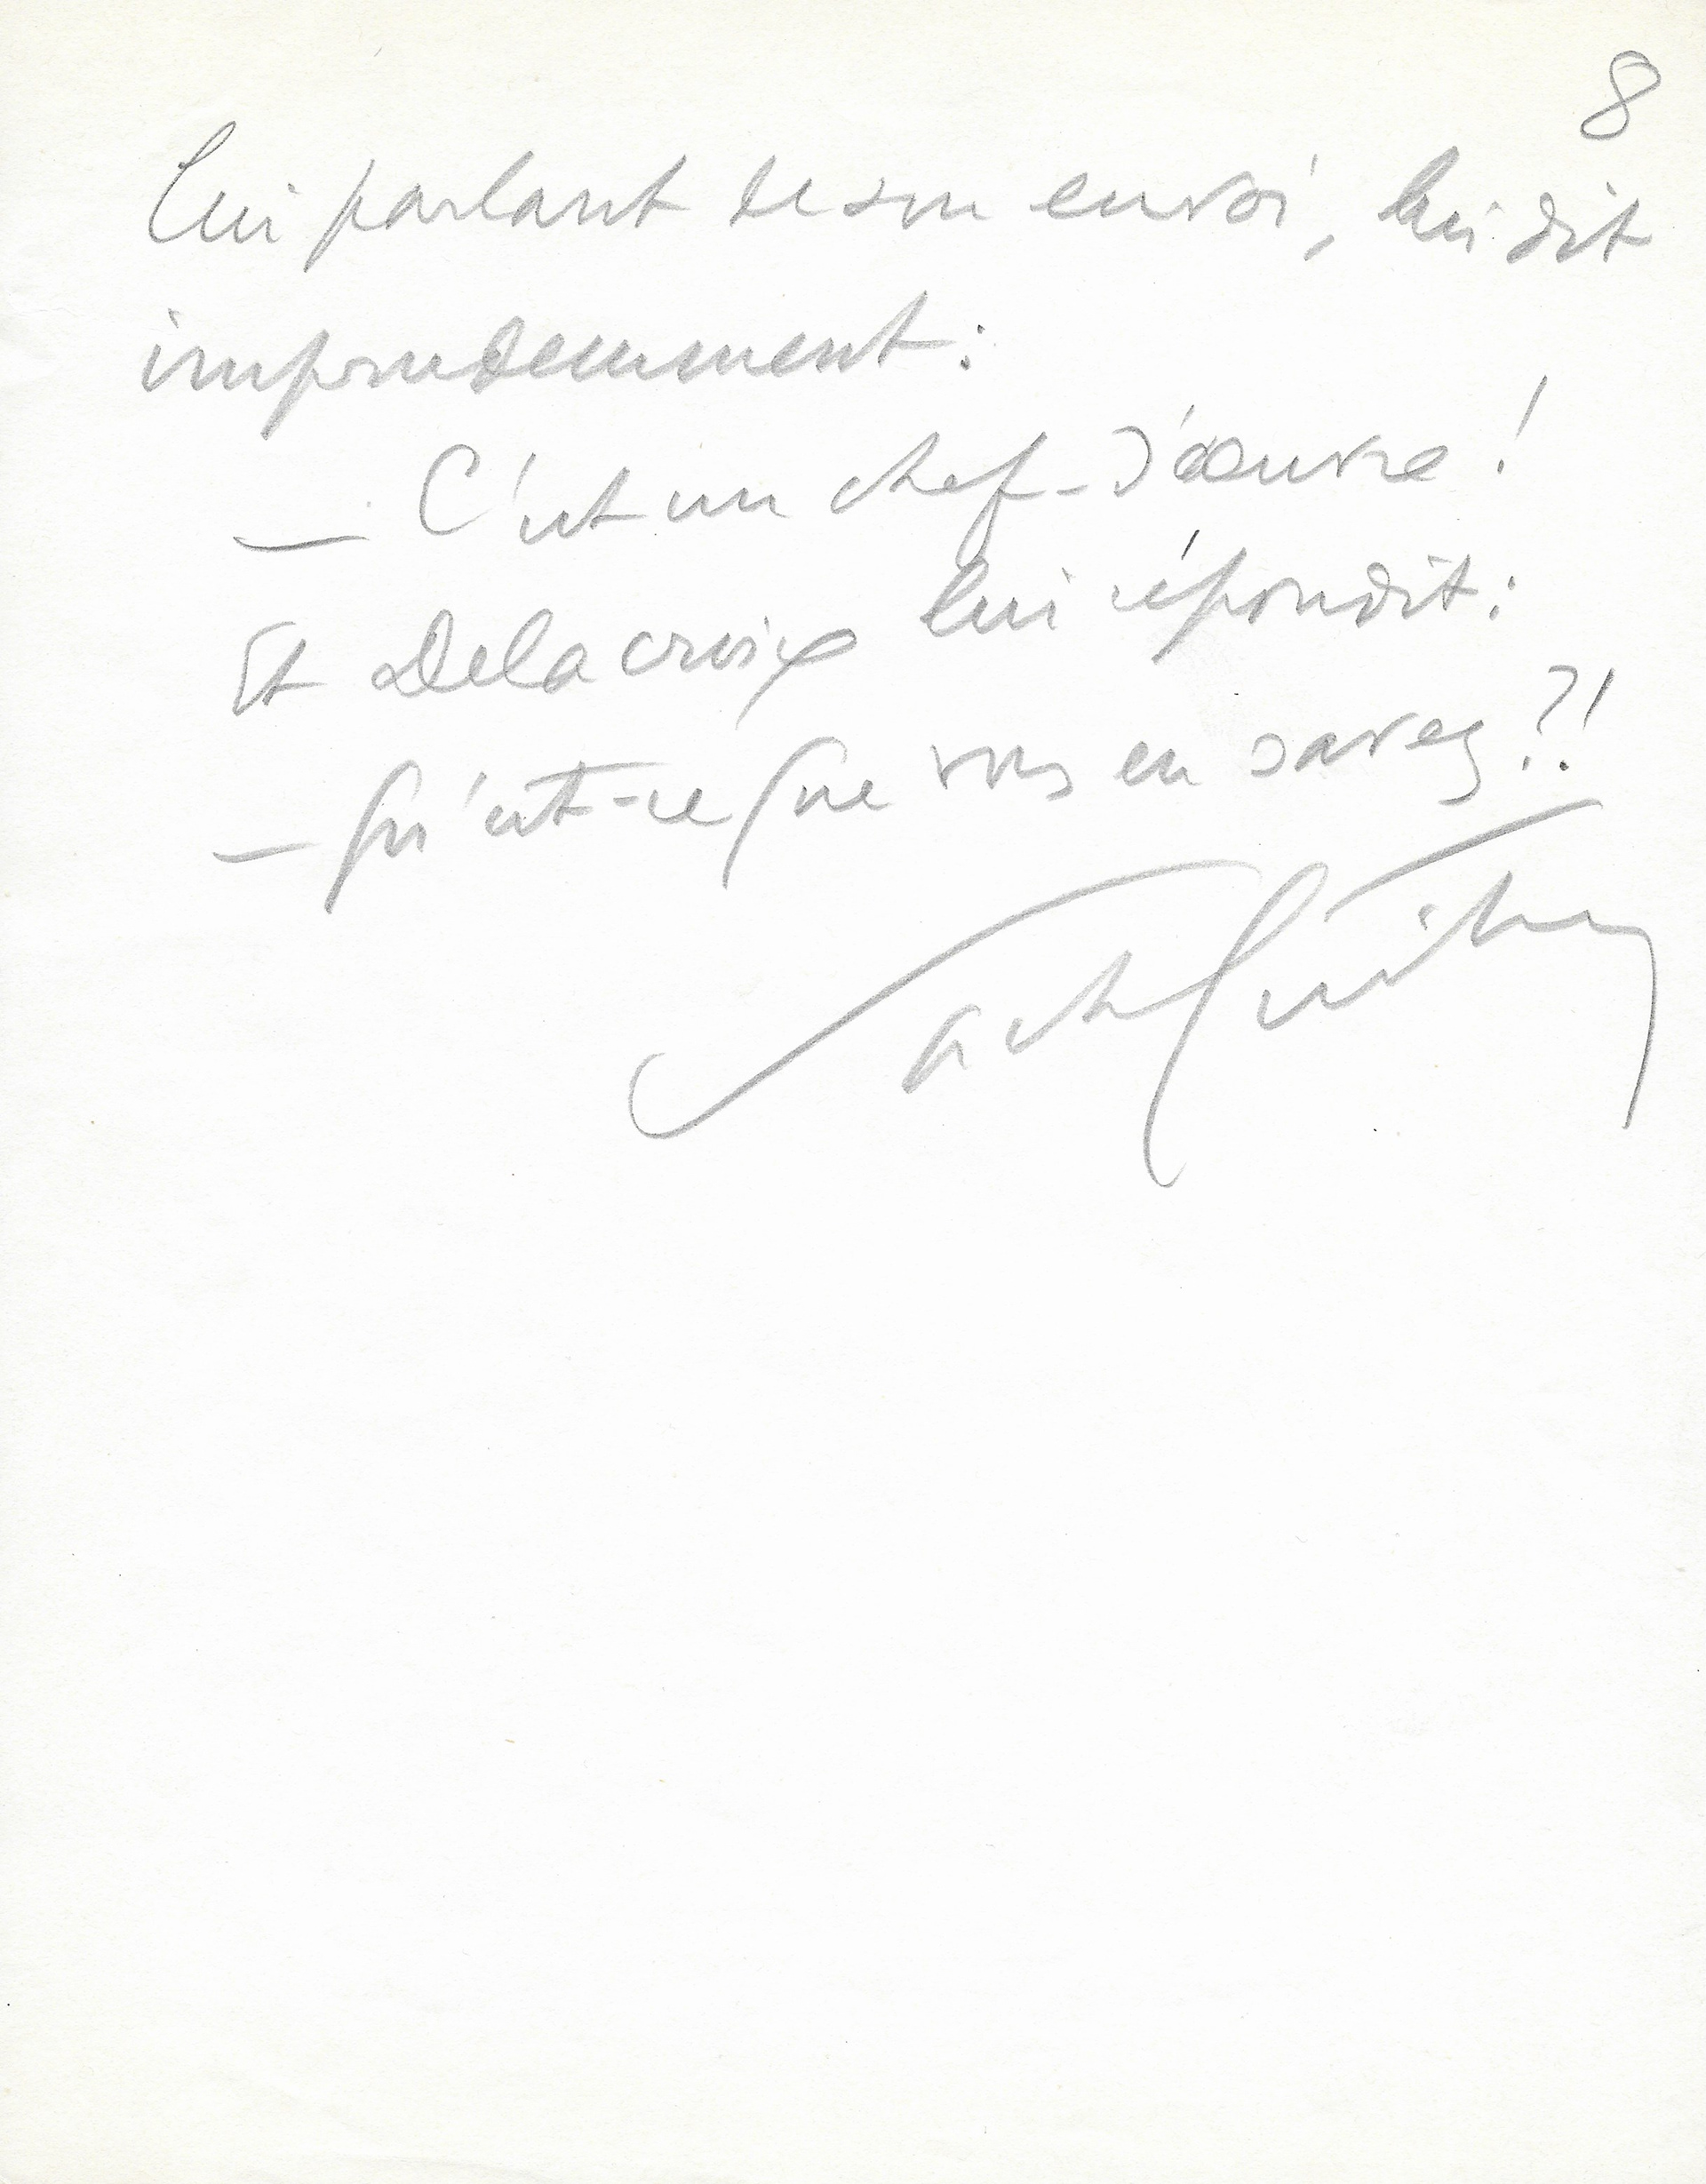 8
lui parlant de son envoi, lui dit
imprudemment :
— C'est un chef-d'œuvre !
Et Delacroix lui répondit :
— Qu'est-ce que vous en savez ?!
Sacha Guitry